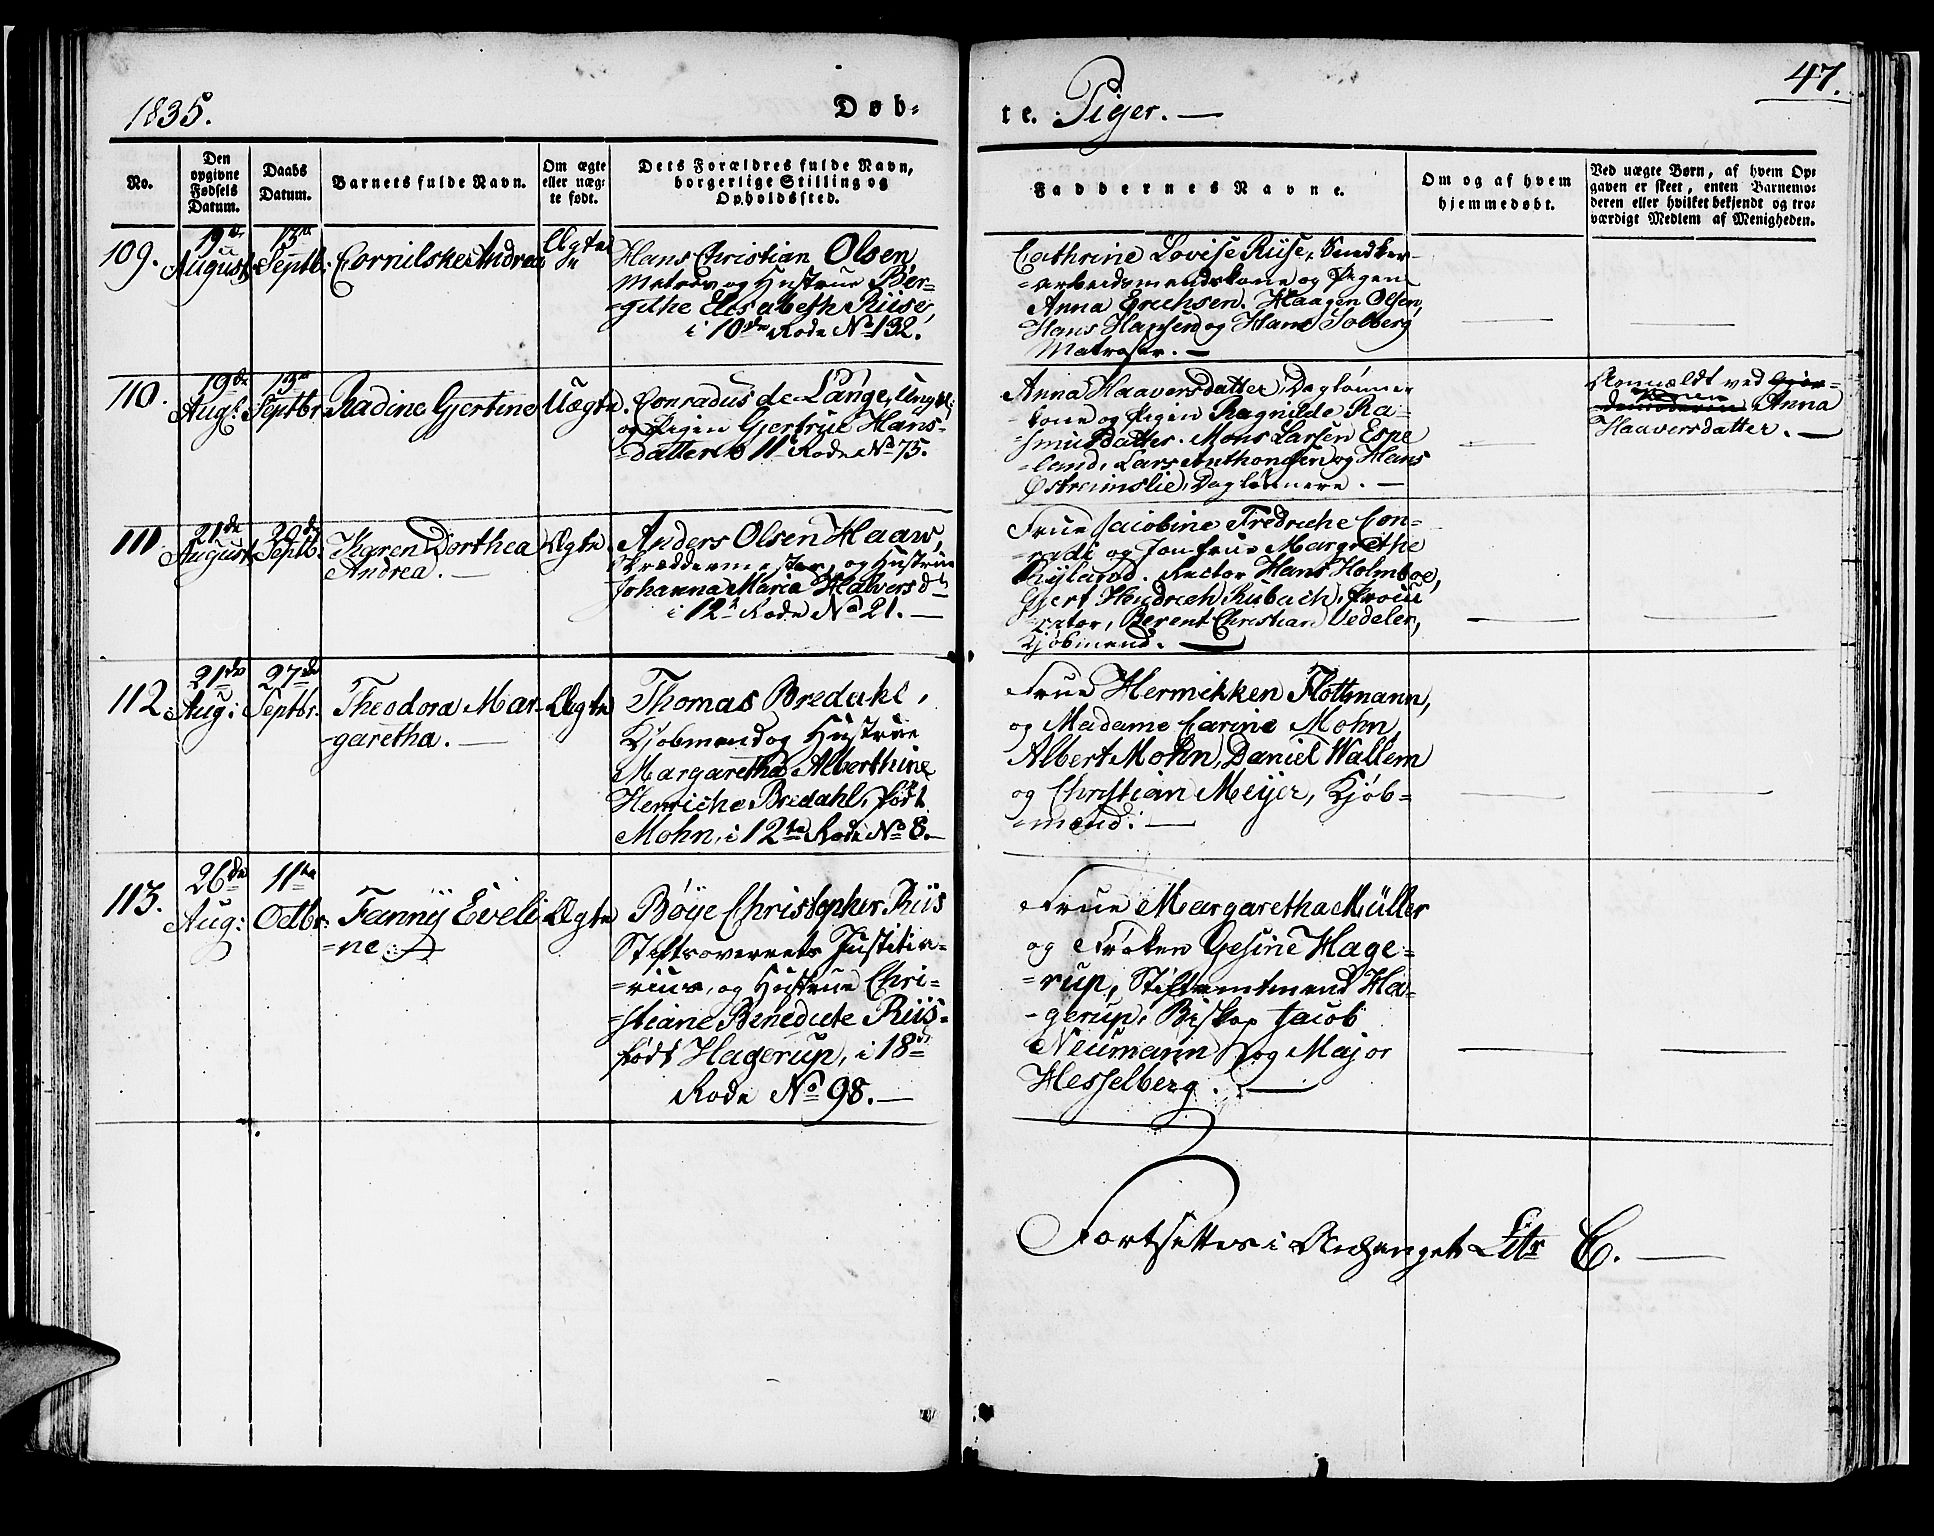 1835.
Døb-
te. Piger. —
47.
No.
Den
opgivne
Fødsels
Datum.
Daabs
Datum.
Barnets fulde Navn.
Om ægte
eller uæg-
te født.
Dets Forældres fulde Navn,
borgerlige Stilling og
Opholdssted.
Faddernes Navne.
Om og af hvem
hjemmedøbt.
Ved uægte Børn, af hvem Op-
gaven er skeet, enten Barnemo-
deren eller hvilket bekjendt og tro-
værdigt Medlem af Menigheden.
109.
19de
August
13de
Septbr:
Cornilske Andrea
Ægte
Hans Christian Olsen,
Matros og Hustrue Ber-
-githe Elisabeth Riise,
i 10de Rode No 132.
Cathrine Lovise Riise,
-arbeidsmandskone og Pigen
Anna Erichsen. Haagen Olsen,
Hans Hansen og Hans Solberg
Matroser. —
110.
19de
Augt.
13de
Septbr.
Radine Gjertine
Uægte.
Conradus de Lange, Ungkl:
og Pigen Gjertrue Hans-
-datter i 11 Rode No 75.
Anna Haaversdatter, Daglønner
kone og Pigen Ragnilde Ra-
-smusdatter. Mons Larsen Espe
-land, Lars Anthonsen og Hans
Østreimslie, Daglønnere. —
Anmældt ved
Konen
Anna
Haaversdatter. —
111.
21de
August
20de
Septb:
Karen Dorthea
Andrea. —
Ægte.
Anders Olsen Haaw,
Skræddermester, og Hustrue
Johanna Maria Halversd
i 12te Rode No 21. —
Frue Jacobine Fredriche Con-
-radi og Jomfrue Margrethe
Rector Hans Holmboe,
Gjert Hendrich Kubach, Procu
-rator, Berent Christian Vedeler,
Kjøbmænd. —
112.
21de
Aug:
27de
Septbr.
Theodora Mar-
-garetha. —
Ægte
Thomas Bredahl,
Kjøbmand og Hustrue
Margaretha Alberthine
Henriche Bredahl, født
Mohn, i 12te Rode No 8. —
Frue Hermikken Flottmann,
og Madame Carine Mohn,
Albert Mohn, Daniel Wallem
og Christian Meyer, Kjøb-
-mænd. —
113.
26de
Aug:
11te
Octbr.
Fanny Eveli
-ne.
Ægte
Bøye Christopher Riis
Stiftsoverrets Justitia-
-rius, og Hustrue Chri-
-stiane Benedicte Riis
født Hagerup, i 18de
Rode No 98. —
Frue Margaretha Müller
og Frøken Gesine Hage-
-rup, Stiftamtmand Ha-
-gerup, Biskop Jacob
Neumann og Major
Hesselberg. —
Fortsettes i Anhenget Litr C. —